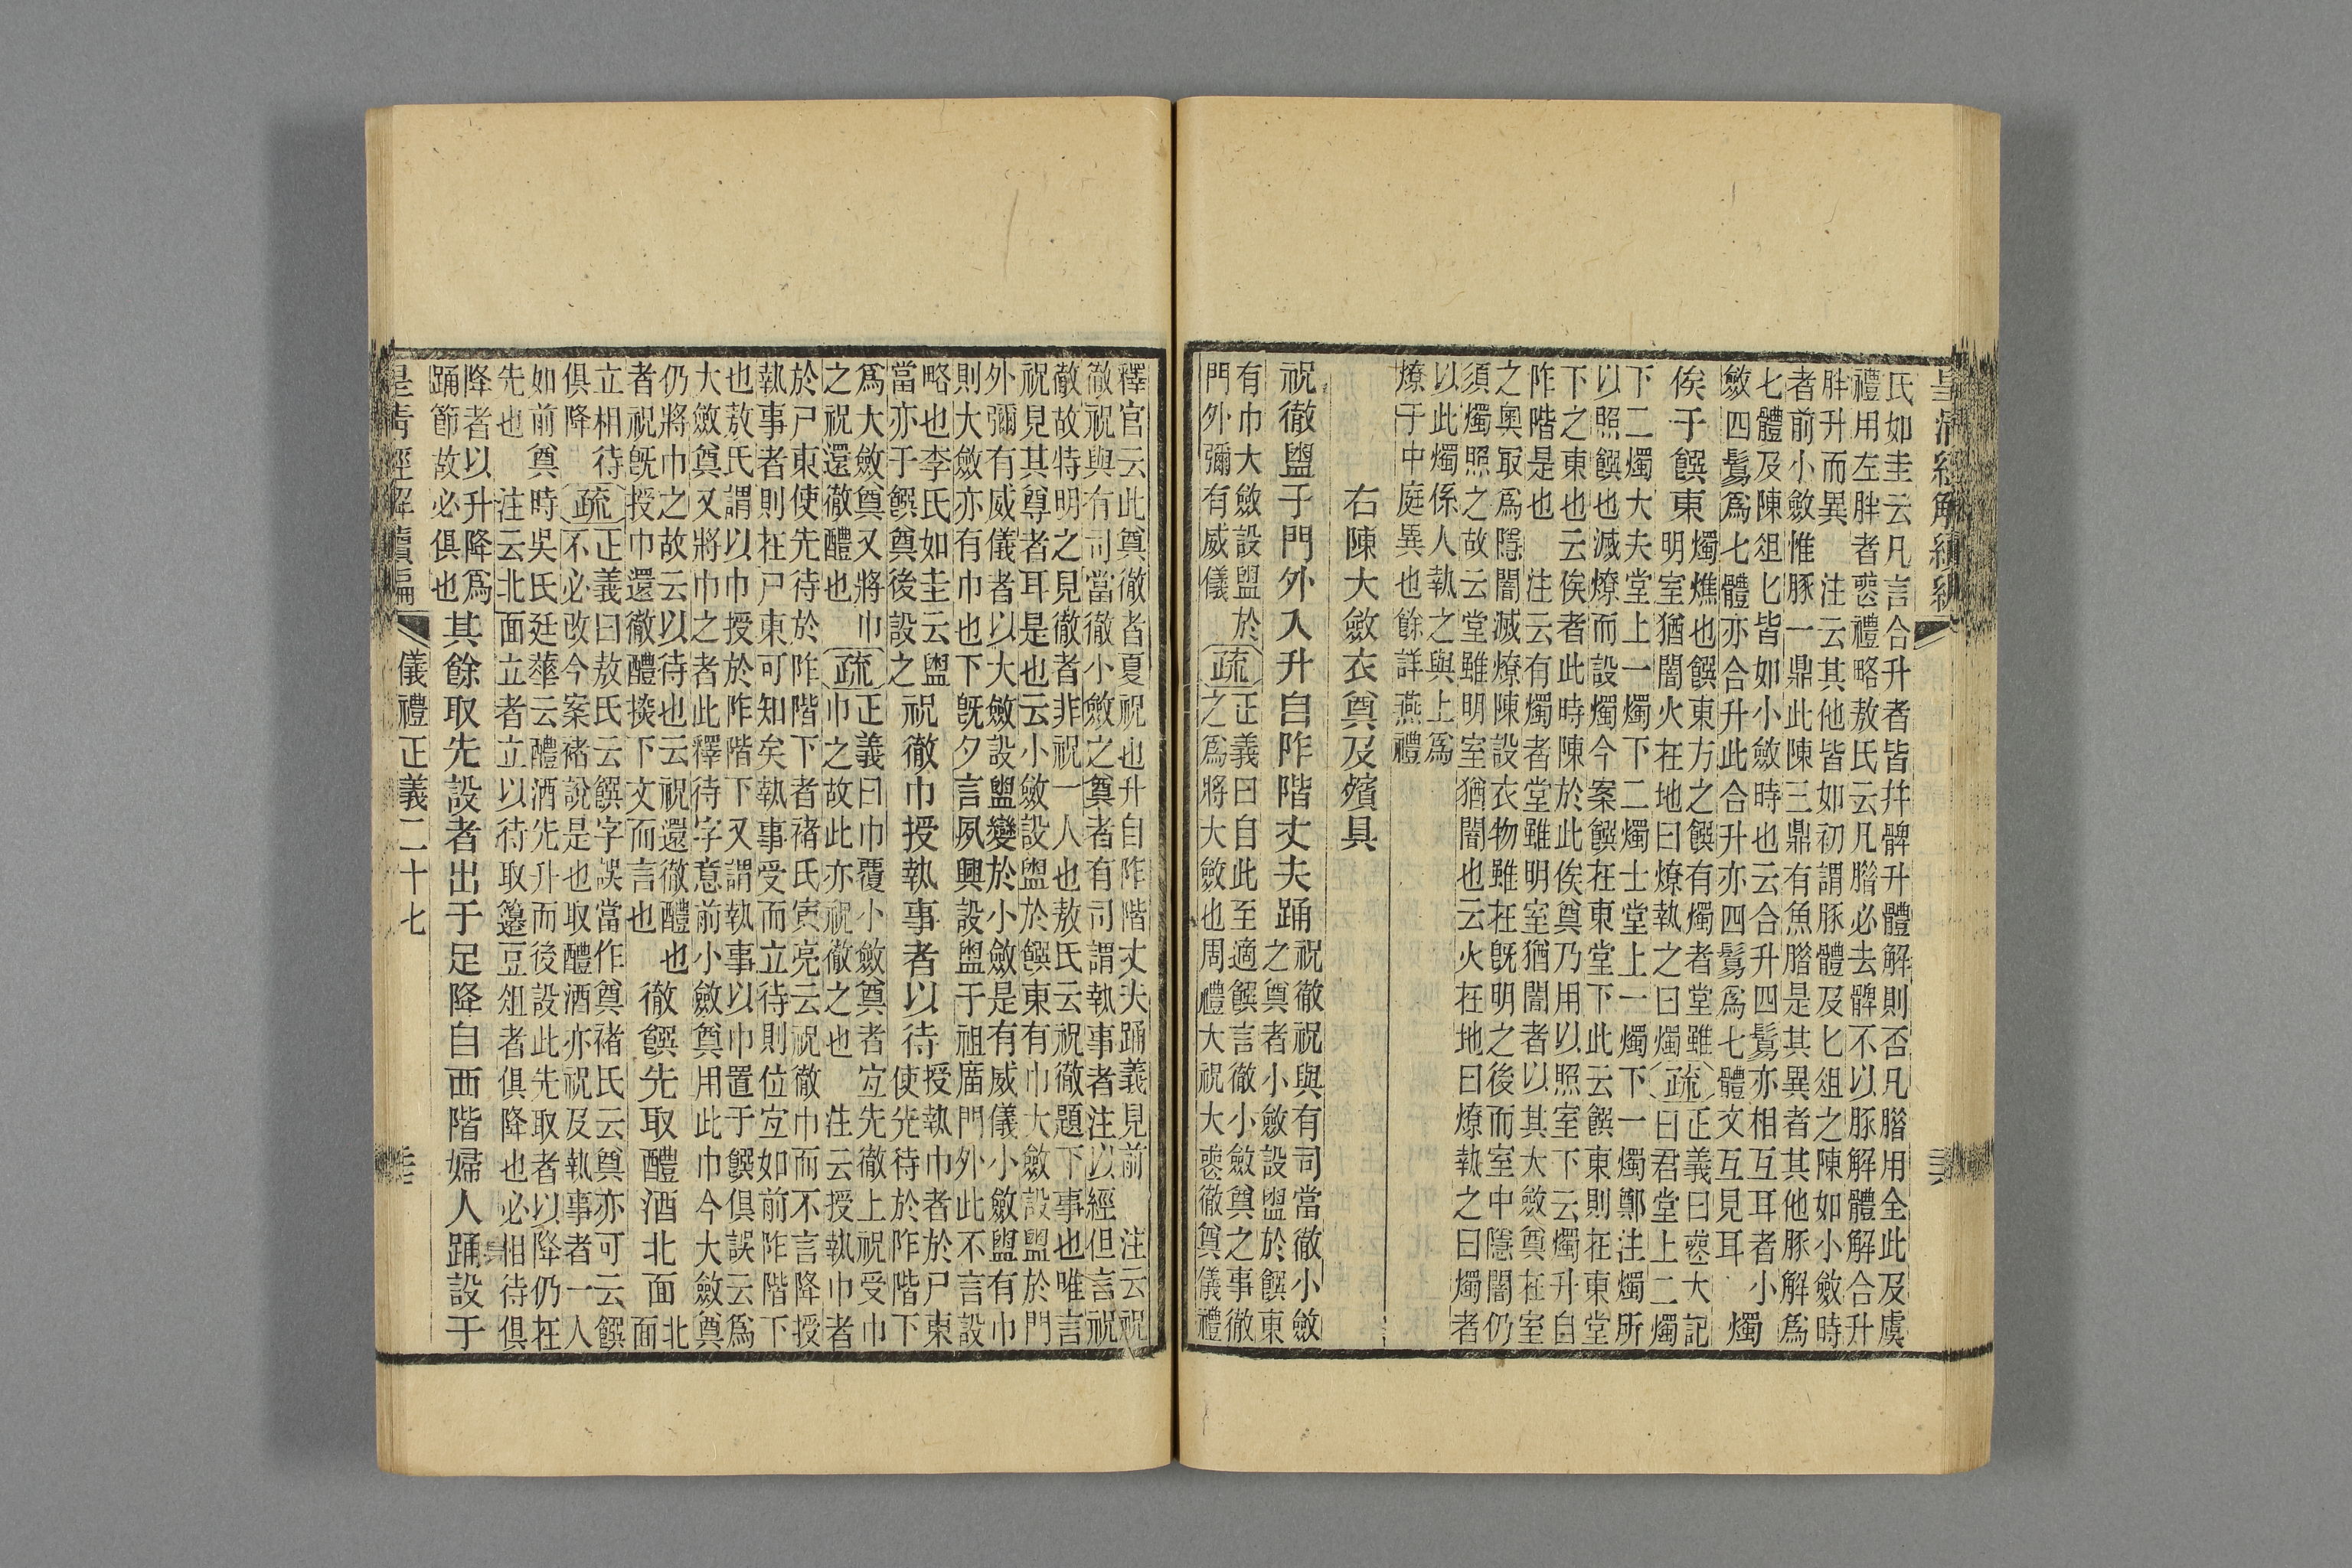 皇清經解續編
氏如圭云凡言合升者皆幷髀升體解則否凡腊用全此及虞
禮用左胖者喪禮略敖氏云凡腊必去髀不以豚解體解合升
胖升而異　注云其他皆如初謂豚體及匕俎之陳如小斂時
者前小斂惟豚一鼎此陳三鼎有魚腊是其異者其他豚解爲
七體及陳俎匕皆如小斂時也云合升四鬄亦相互耳者小
斂四鬄爲七體亦合升此合升亦四鬄爲七體文互見耳
燭
俟于饌東
燭燋也饌東方之饌有燭者堂雖
明室猶闇火在地曰燎執之曰燭
疏
正義曰喪大記
曰君堂上二燭
下二燭大夫堂上一燭下二燭士堂上一燭下一燭鄭注燭所
以照饌也滅燎而設燭今案饌在東堂下此云饌東則在東堂
下之東也云俟者此時陳於此俟奠乃用以照室下云燭升自
阼階是也　注云有燭者堂雖明室猶闇者以其大斂奠在室
之奧取爲隱闇滅燎陳設衣物雖在旣明之後而室中隱闇仍
須燭照之故云堂雖明室猶闇也云火在地曰燎執之曰燭者
以此燭係人執之與上爲
燎于中庭異也餘詳燕禮
右陳大斂衣奠及殯具
祝徹盥于門外入升自阼階丈夫踊
祝徹祝與有司當徹小斂
之奠者小斂設盥於饌東
有巾大斂設盥於
門外彌有威儀
疏
正義曰自此至適饌言徹小斂奠之事徹
之爲將大斂也周禮大祝大喪徹奠儀禮
釋官云此奠徹者夏祝也升自阼階丈夫踊義見前　注云祝
徹祝與有司當徹小斂之奠者有司謂執事者注以經但言祝
徹故特明之見徹者非祝一人也敖氏云祝徹題下事也唯言
祝見其尊者耳是也云小斂設盥於饌東有巾大斂設盥於門
外彌有威儀者以大斂設盥變於小斂是有威儀小斂盥有巾
則大斂亦有巾也下旣夕言夙興設盥于祖廟門外此不言設
略也李氏如圭云盥
當亦于饌奠後設之
祝徹巾授執事者以待
授執巾者於尸東
使先待於阼階下
爲大斂奠又將巾
之祝還徹醴也
疏
正義曰巾覆小斂奠者宜先徹上祝受巾
巾之故此亦祝徹之也　注云授執巾者
於尸東使先待於阼階下者褚氏寅亮云祝徹巾而不言降授
執事者則在尸東可知矣執事受而立待則位宜如前阼階下
也敖氏謂以巾授於阼階下又謂執事以巾置于饌俱誤云爲
大斂奠又將巾之者此釋待字意前小斂奠用此巾今大斂奠
仍將巾之故云以待也云祝還徹醴也
者祝旣授巾還徹醴㨾下文而言也
徹饌先取醴酒北面
北
面
立相待
俱降
疏
正義曰敖氏云饌字誤當作奠褚氏云奠亦可云饌
不必改今案褚說是也取醴酒亦祝及執事者一人
如前奠時吳氏廷華云醴酒先升而後設此先取者以降仍在
先也　注云北面立者立以待取籩豆俎者俱降也必相待俱
降者以升降爲
踊節故必俱也
其餘取先設者出于足降自西階婦人踊設于
皇清經解續編
儀禮正義二十七